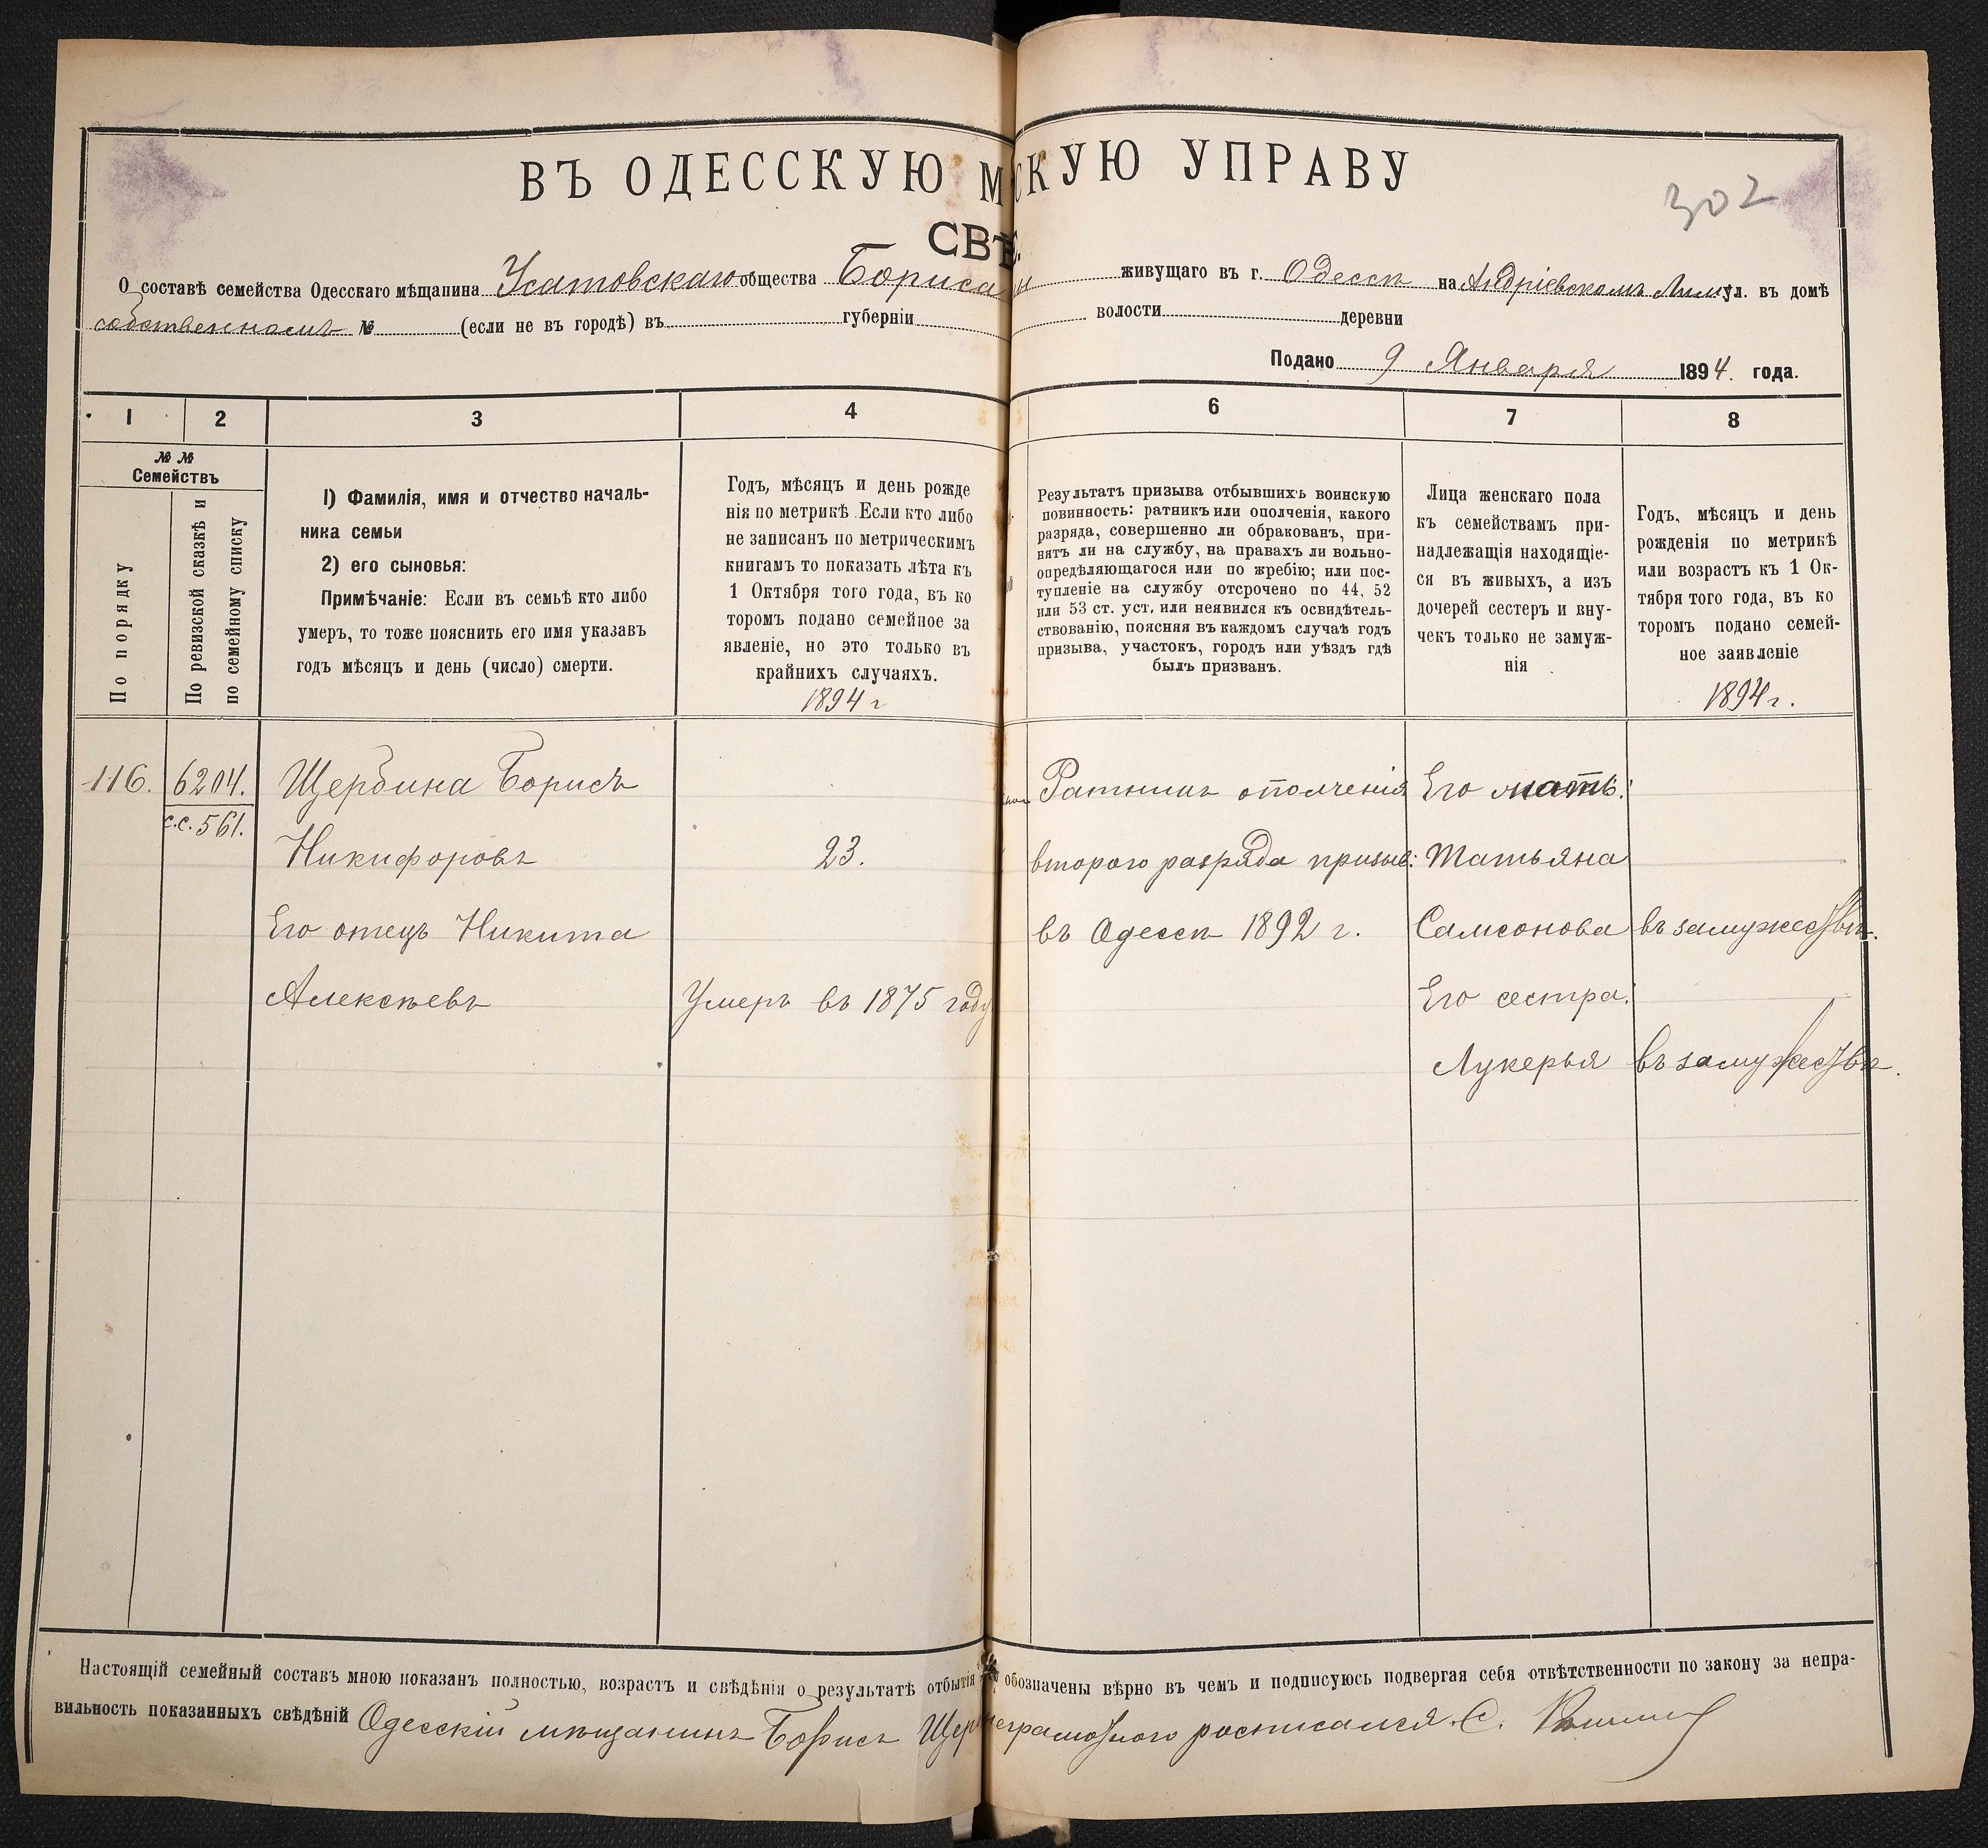 ВЪ ОДЕССКУЮ М СКУЮ УПРАВУ
302
СВѢ
О составѣ семейства Одесскаго мѣщанина Усатовскаго общества Бориса живущаго въ г. Одессѣ на Андріевскомъ ул. въ домѣ
собственномъ № (если не въ городѣ) въ губерніи волости деревни
Подано 9 Января 1894. года.
1 2 3 4 6 7 8
№ №
Семействъ
По порядку
По ревизской сказкѣ и
по семейному списку
1) Фамилія, имя и отчество началь-
ника семьи
2) его сыновья:
Примѣчаніе: Если въ семьѣ кто либо
умеръ, то тоже пояснить его имя указавъ
годъ мѣсяцъ и день (число) смерти.
Годъ, мѣсяцъ и день рожде
нія по метрикѣ Если кто либо
не записанъ по метрическимъ
книгамъ то показать лѣта къ
1 Октября того года, въ ко
торомъ подано семейное за
явленіе, но это только въ
крайнихъ случаяхъ.
1894 г
Результатъ призыва отбывшихъ воинскую
повинность: ратникъ или ополченія, какого
разряда, совершенно ли обракованъ, при-
нятъ ли на службу, на правахъ ли вольно-
опредѣляющагося или по жребію; или пос-
тупленіе на службу отсрочено по 44, 52
или 53 ст. уст. или неявился къ освидѣтель-
ствованію, поясняя въ каждомъ случаѣ годъ
призыва, участокъ, городъ или уѣздъ гдѣ
былъ призванъ.
Лица женскаго пола
къ семействамъ при-
надлежащія находящіе-
ся въ живыхъ, а изъ
дочерей сестеръ и вну-
чекъ только не замуж-
нія
Годъ, мѣсяцъ и день
рожденія по метрикѣ
или возрастъ къ 1 Ок-
тября того года, въ ко
торомъ подано семей-
ное заявленіе
1894 г.
116. 6204. Щербина Борисъ Ратникъ ополченія Его мать:
с.с. 561.
Никифоровъ 23. второго разряда призыв: Татьяна
Его отецъ Никита въ Одессѣ 1892 г. Самсонова въ замужествѣ.
Алексѣевъ Умеръ въ 1875 году Его сестра:
Лукерья въ замужествѣ.
Настоящій семейный составъ мною показанъ полностью, возрастъ и свѣдѣнія о результатѣ отбытія обозначены вѣрно въ чемъ и подписуюсь подвергая себя отвѣтственности по закону за непра-
вильность показанныхъ свѣдѣній Одесскій мѣщанинъ Борисъ Щер неграмотного росписался С.